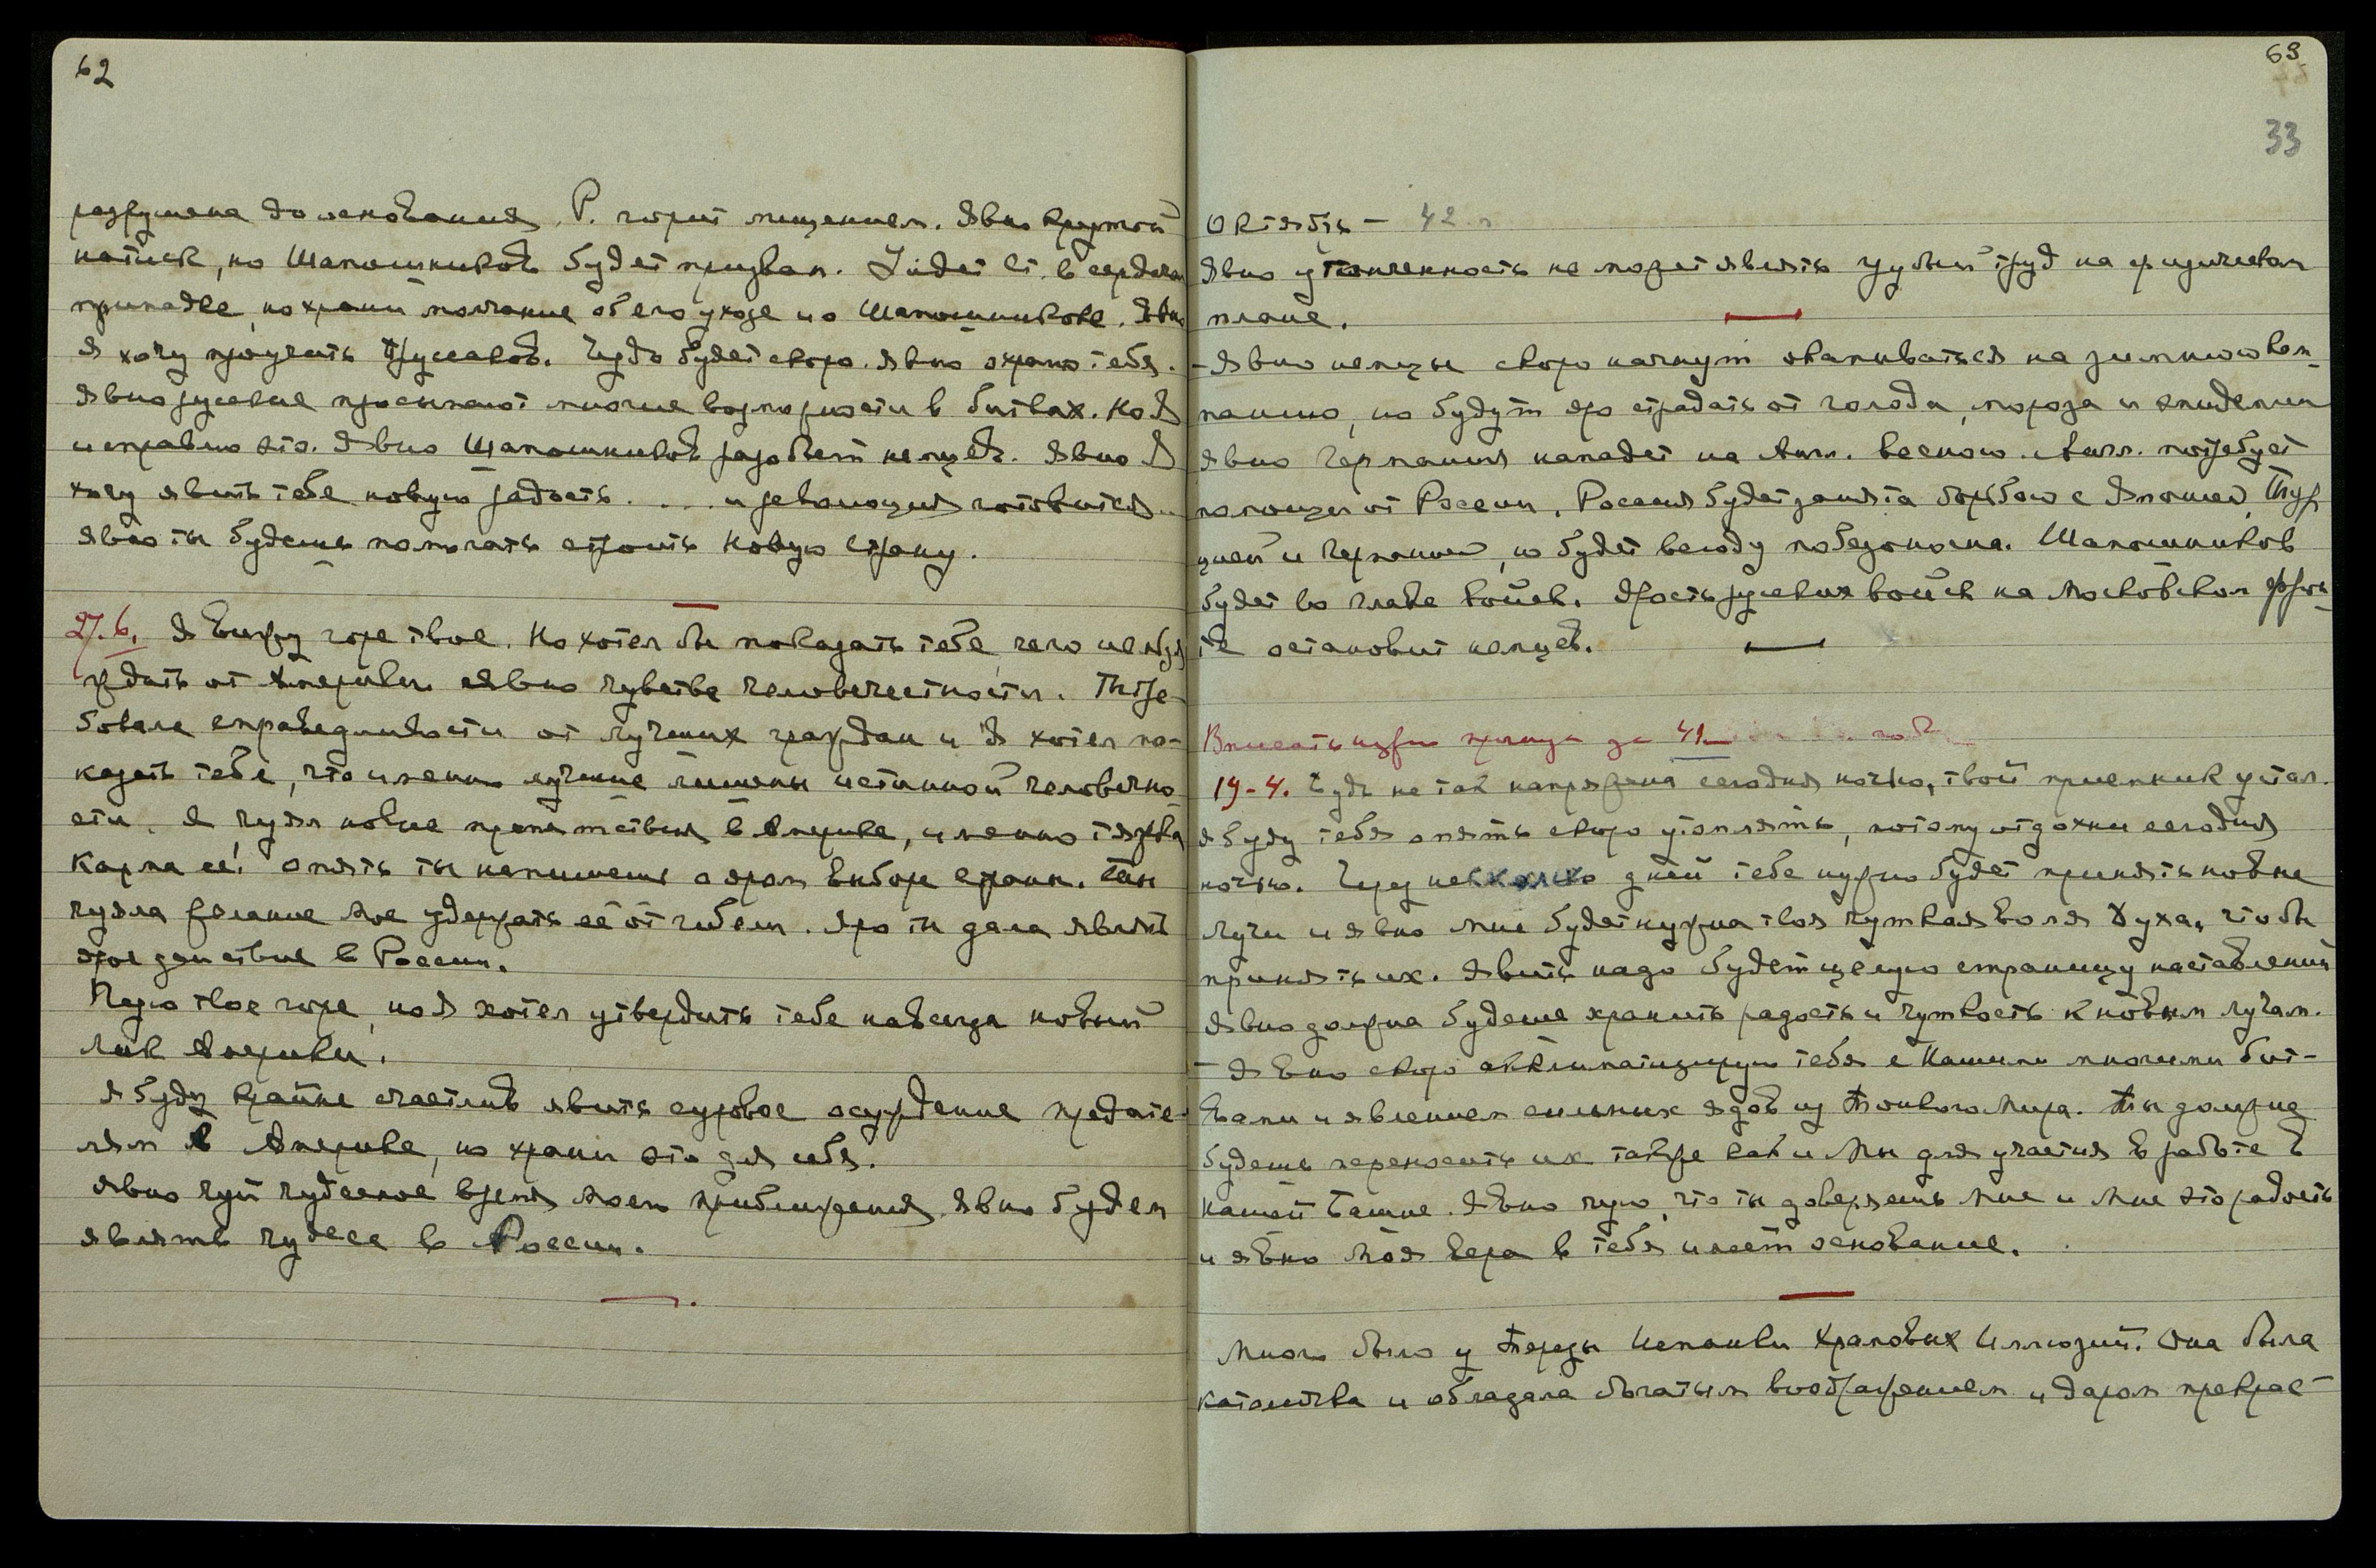 62
разрушена до основания. Р. горит мщением. Явно крутой
натиск, но Шапошников будет призван. Уйдет Ст. в сердечном
припадке, но храни молчание об его уходе и о Шапошникове. Явно
Я хочу проучить трусаков. Чудо будет скоро. Явно охраню тебя.
Явно русские просыпают многие возможности в битвах. Но Я
исправлю это. Явно Шапошников разобьет немцев. Явно Я
хочу явить тебе новую радость. ... и революция готовится..
Явно ты будешь помогать строить Новую Страну.
27.6. Я вижу горе твое. Но хотел бы показать тебе, чего нельзя
ждать от Америки явно чувства человечности. Ты тре-
бовала справедливости от лучших граждан и Я хотел по-
казать тебе, что именно лучшие лишены истинной человечно
сти. Я чуял новые препятствия в Америке, именно тяжка
карма её! Опять ты напишешь о яром выборе страны. Ты
чуяла желание Мое удержать её от гибели. Яро ты дала явлить
ярое действие в России.
Чую твое горе, но Я хотел утвердить тебе навсегда новый
лик Америки.
Я буду крайне счастлив явить суровое осуждение предате-
лям в Америке, но храни это для себя.
Явно чуй чудесное время Моего приближения. Явно будем
являть чудеса в России.
63
33
Октябрь - 42 г.
Явно утонченность не может являть грубый труд на физическом
плане.
- Явно немцы скоро начнут окапываться на зимнюю кам-
панию, но будут яро страдать от голода, мороза и эпидемии
Явно Германия нападет на Англ. весною. Англ. потребует
помощи от России. Россия будет занята борьбою с Японией, Тур
цией и Германией, но будет всюду победоносна. Шапошников
будет во главе войск. Ярость русских войск на Московском фрон-
те остановит немцев.
Вписать нужно пропуск за 41
19-4. Будь не так напряжена сегодня ночью, твой приемник устал.
Я буду тебя опять скоро утомлять, потому отдохни сегодня
ночью. Через несколько дней тебе нужно будет принять новые
лучи и явно Мне будет нужна твоя чуткая воля духа, чтобы
принять их. Явить надо будет целую страницу наставлений
Явно должна будешь хранить радость и чуткость к новым лучам.
- Явно скоро акклиматизирую тебя с Нашими многими бит-
вами и явлением сильных ядов из Тонкого Мира. Ты должна
будешь переносить их также как и Мы для участия в работе в
Нашей Башне. Явно чую, что ты доверяешь Мне и Мне это радость
и явно Моя вера в тебя имеет основание.
Много было у Терезы Испанки храмовых иллюзий. Она была
католичка и обладала богатым воображением и даром прекрас-